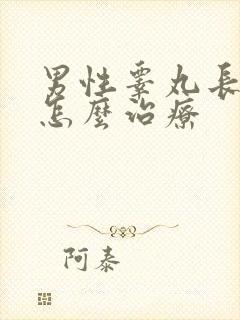 男性睾丸長
怎麼治療
阿泰